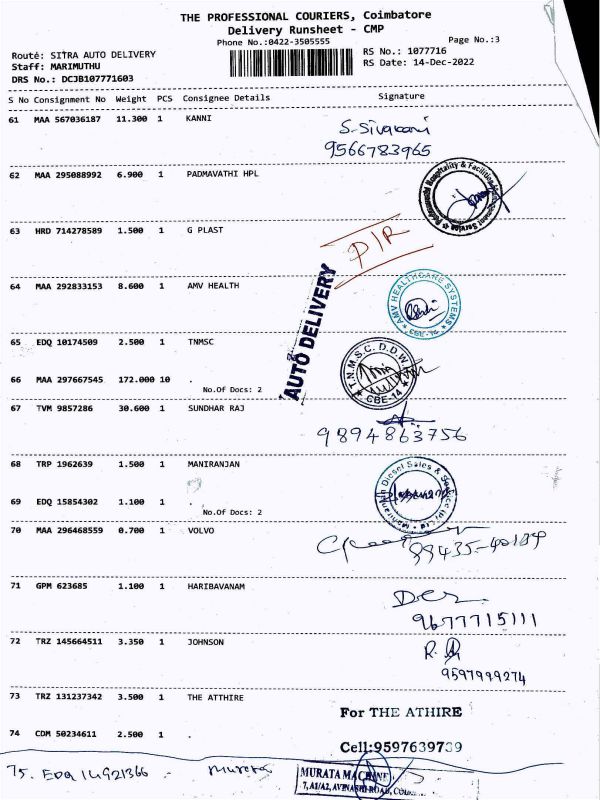 THE PROFESSIONAL COURIERS, Coimbatore
Delivery Runsheet - CMP
Phone No.:0422-3505555
Page No.:3
Route: SITRA AUTO DELIVERY
RS No.: 1077716
Staff: MARIMUTHU
RS Date: 14-Dec-2022
DRS No.: DCJB107771603
S No Consignment No Weight PCS Consignee Details Signature
61 MAA 567036187 11.300 1 KANNI
S. Sivakani
9566783965
62 MAA 295088992 6.900 1 PADMAVATHI HPL
Padmavathi Hospitality & Facilities Management Service
63 HRD 714278589 1.500 1 G PLAST
DIR
64 MAA 292833153 8.600 1 AMV HEALTH
AMV HEALTHCARE SYSTEMS
CBE-14
AUTO DELIVERY
65 EDQ 10174509 2.500 1 TNMSC
T.N.M.S.C. D.D.W.
CBE-14
66 MAA 297667545 172.000 10 .
No.Of Docs: 2
67 TVM 9857286 30.600 1 SUNDHAR RAJ
9894863756
68 TRP 1962639 1.500 1 MANIRANJAN
Maniranjan Diesel Sales & Service (P) Ltd
69 EDQ 15854302 1.100 1 .
No.Of Docs: 2
70 MAA 296468559 0.700 1 VOLVO
71 GPM 623685 1.100 1 HARIBAVANAM
9677715111
72 TRZ 145664511 3.350 1 JOHNSON
9597999274
73 TRZ 131237342 3.500 1 THE ATTHIRE
For THE ATHIRE
74 CDM 50234611 2.500 1 .
Cell:9597639739
75. EDQ 14921366 - Murata
MURATA MACHINE
7, A1/A2, AVINASHI ROAD,